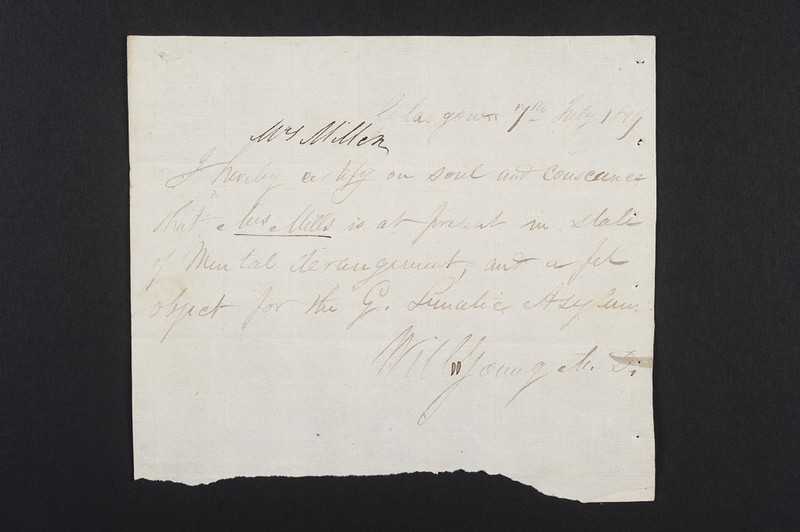 Glasgow 7th July 1817
Mrs Miller
I hereby certify on soul and conscence
that Mrs Mills is at present in state
of Mental derangement, and a fit
object for the G. Lunatic Asylum.
Will Young M. D.